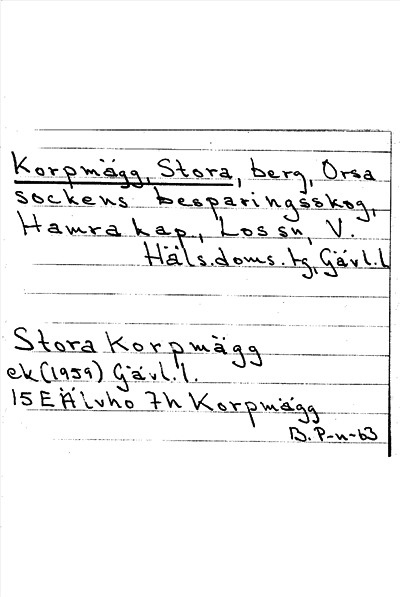 Korpmägg, Stora, berg, Orsa
sockens besparingsskog,
Hamra kap., Los sn, V.
Häls.doms.tg, Gävl.l
Stora Korpmägg
ek (1959) Gävl.l.
15E Älvho 7h Korpmägg
B. P-n-63